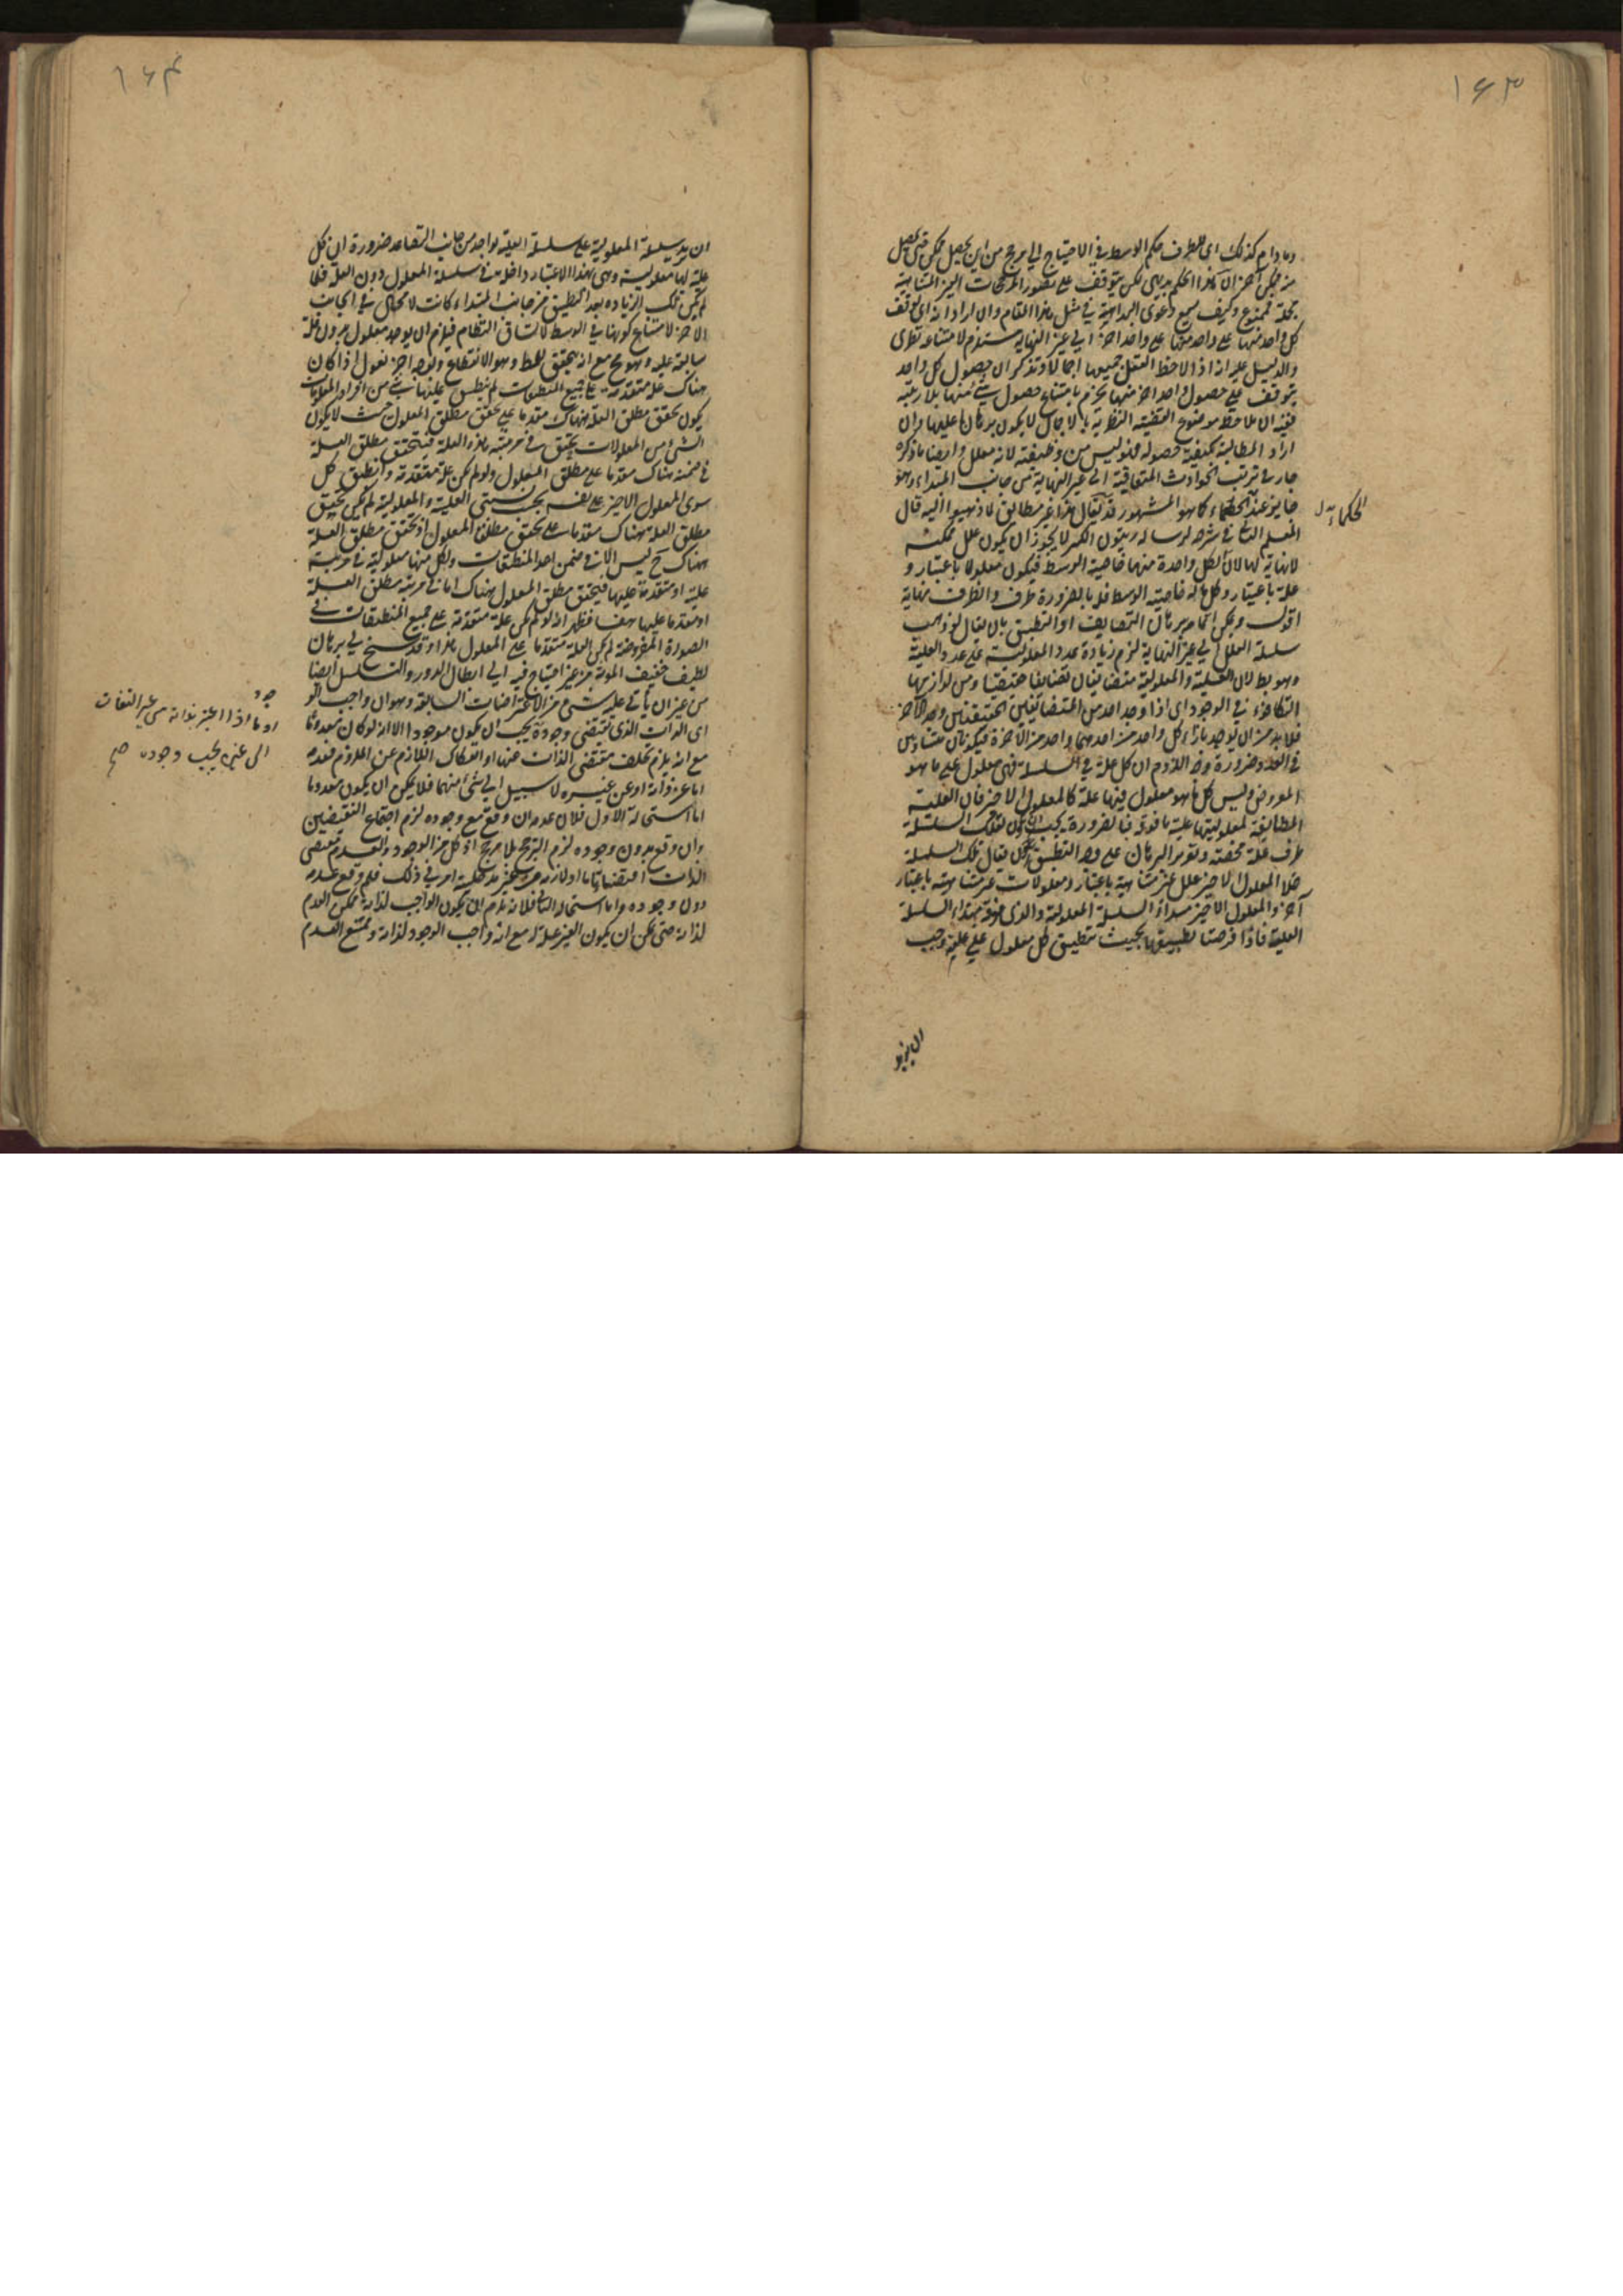 ١٦٣
وما دام كذلك اى للطرف حكم الوسط فى الاحتياج الى مرجح من اين يحصل ممكن حتى يحصل
منه ممكن آخر الا ان هذا الحكم بديهى لكن يتوقف على تصور المرجحات الغير المتناهية
جملة فممنوع وكيف يسمع دعوى البداهة فى مثل هذا المقام وان اراد انه اى توقف
كل واحد منها على واحد منها على واحد آخر الى غير النهاية مستلزم لامتناعه نظرى
والدليل عليه انه اذا لاحظ العقل جميعها اجمالا وتذكر ان حصول كل واحد
يتوقف على حصول واحد آخر منها يجزم بامتناع حصول شئ منها بلا ريبة
ففيه ان ملاحظة موضوع القضية النظرية بالاجمال لا يكون برهانا عليها وان
اراد المطالبة بكيفية حصوله فهو ليس من وظيفته لانه معلل وايضا ما ذكره
جار فى ترتب الحوادث المتعاقبة الى غير النهاية من جانب المبتداء وهو
جايز عند الحكماء كما هو المشهور قد يقال هذا غير مطابق لما ذهبوا اليه قال
الحكماء بدل
المعلم الثانى فى شرحه لرسالة زينون الكبير لا يجوز ان يكون علل ممكنة
لا نهاية لها لان لكل واحدة منها خاصية الوسط فيكون معلولا باعتبار و
علة باعتبار وكل ما له خاصية الوسط فله بالضرورة طرف والطرف نهاية
اقول ويمكن اتمامه ببرهان التضايف او التطبيق بان يقال لو ذهب
سلسلة العلل الى غير النهاية لزم زيادة عدد المعلولية على عدد العلية
وهو بط لان العلية والمعلولية متضايفان تضايفا حقيقيا ومن لوازمها
التكافؤ فى الوجود اى اذا وجد احد من المتضايفين الحقيقيين وجد الآخر
فلا بد من ان يوجد بازاء كل واحد من احدهما واحد من الآخر فيكونان متساويين
فى العدد ضرورة وجه اللزوم ان كل علة فى السلسلة فهى معلول على ما هو
المفروض وليس كل ما هو معلول فيها علة كالمعلول الاخير فان العلية
المطابقة لمعلوليتها علية ما فوقه فبالضرورة يجب ان يكون لتلك السلسلة
طرف علة محضة ولتقرير البرهان على وجه التطبيق يمكن ان يقال تلك السلسلة
خلا المعلول الاخير علل غير متناهية باعتبار ومعلولات غير متناهية باعتبار
آخر والمعلول الاخير مبداء السلسلة المعلولية والذى فوقه مبداء السلسلة
العلية فاذا فرضنا تطبيقها بحيث ينطبق كل معلول على علية وجب
ان يزيد
١٦٤
ان يزيد سلسلة المعلولية على سلسلة العلية بواحد من جانب التصاعد ضرورة ان كل
علة لها معلولية وهى بهذا الاعتبار داخلة فى سلسلة المعلول دون العلة فلما
لم يكن تلك الزيادة بعد التطبيق من جانب المبتداء كانت لا محالة فى الجانب
الآخر لامتناع كونها فى الوسط لاتساق النظام فيلزم ان يوجد معلول بدون علة
سابقة عليه وهو مح مع انه يحقق للخط وهو الانقطاع وبوجه اخر نقول اذا كان
هناك علة متقدمة على جميع المنطبقات لم ينطبق عليها شئ من افراد المعلولات
يكون تحقق مطلق العلة هناك مقدما على تحقق مطلق المعلول حيث لا يكون
الشئ من المعلولات يتحقق فى مرتبة هذه العلة فيتحقق مطلق العلة
فى ضمنه هناك مقدما على مطلق المعلول ولو لم يكن علة متقدمة وانطبق كل
سوى المعلول الاخير على نفسه بحسب نسبتى العلية والمعلولية لم يكن تحقق
مطلق العلة هناك مقدما على تحقق مطلق المعلول اذ تحقق مطلق العلة
هناك ح ليس الا فى ضمن احد المنطبقات ولكل منها معلولية فى مرتبة
علية او متقدمة عليها فيتحقق مطلق المعلول هناك اما فى مرتبة مطلق العلة
او مقدما عليها هف فظهر انه لو لم يكن علة متقدمة على جميع المنطبقات فى
الصورة المفروضة لم يكن العلة متقدما على المعلول هذا وقد سنح لى برهان
لطيف خفيف المونة من غير احتياج فيه الى ابطال الدور والتسلسل ايضا
من غير ان ياتى عليه شئ من الاعتراضات السابقة وهو ان واجب الوجود
اى الذات الذى تقتضى وجوده يجب ان يكون موجودا الا انه لو كان معدوما
وما اذا اعتبر بذاته من غير التفات
الى غيره يجب وجوده صح
مع انه يلزم تخلف مقتضى الذات عنها وانفكاك اللازم عن الملزوم فعدمه
اما عن ذاته او عن غيره لا سبيل الى شئ منهما فلا يمكن ان يكون معدوما
اما استحالة الاول فلان عدمه ان وقع مع وجوده لزم اجتماع النقيضين
وان وقع بدون وجوده لزم الترجيح بلا مرجح اذ كل من الوجود والعدم مقتضى
دون وجوده واما استحالة الثانى فلانه يلزم ان يكون الواجب لذاته ممكن العدم
لذاته حتى يمكن ان يكون الغير علة له مع انه واجب الوجود لذاته وممتنع العدم